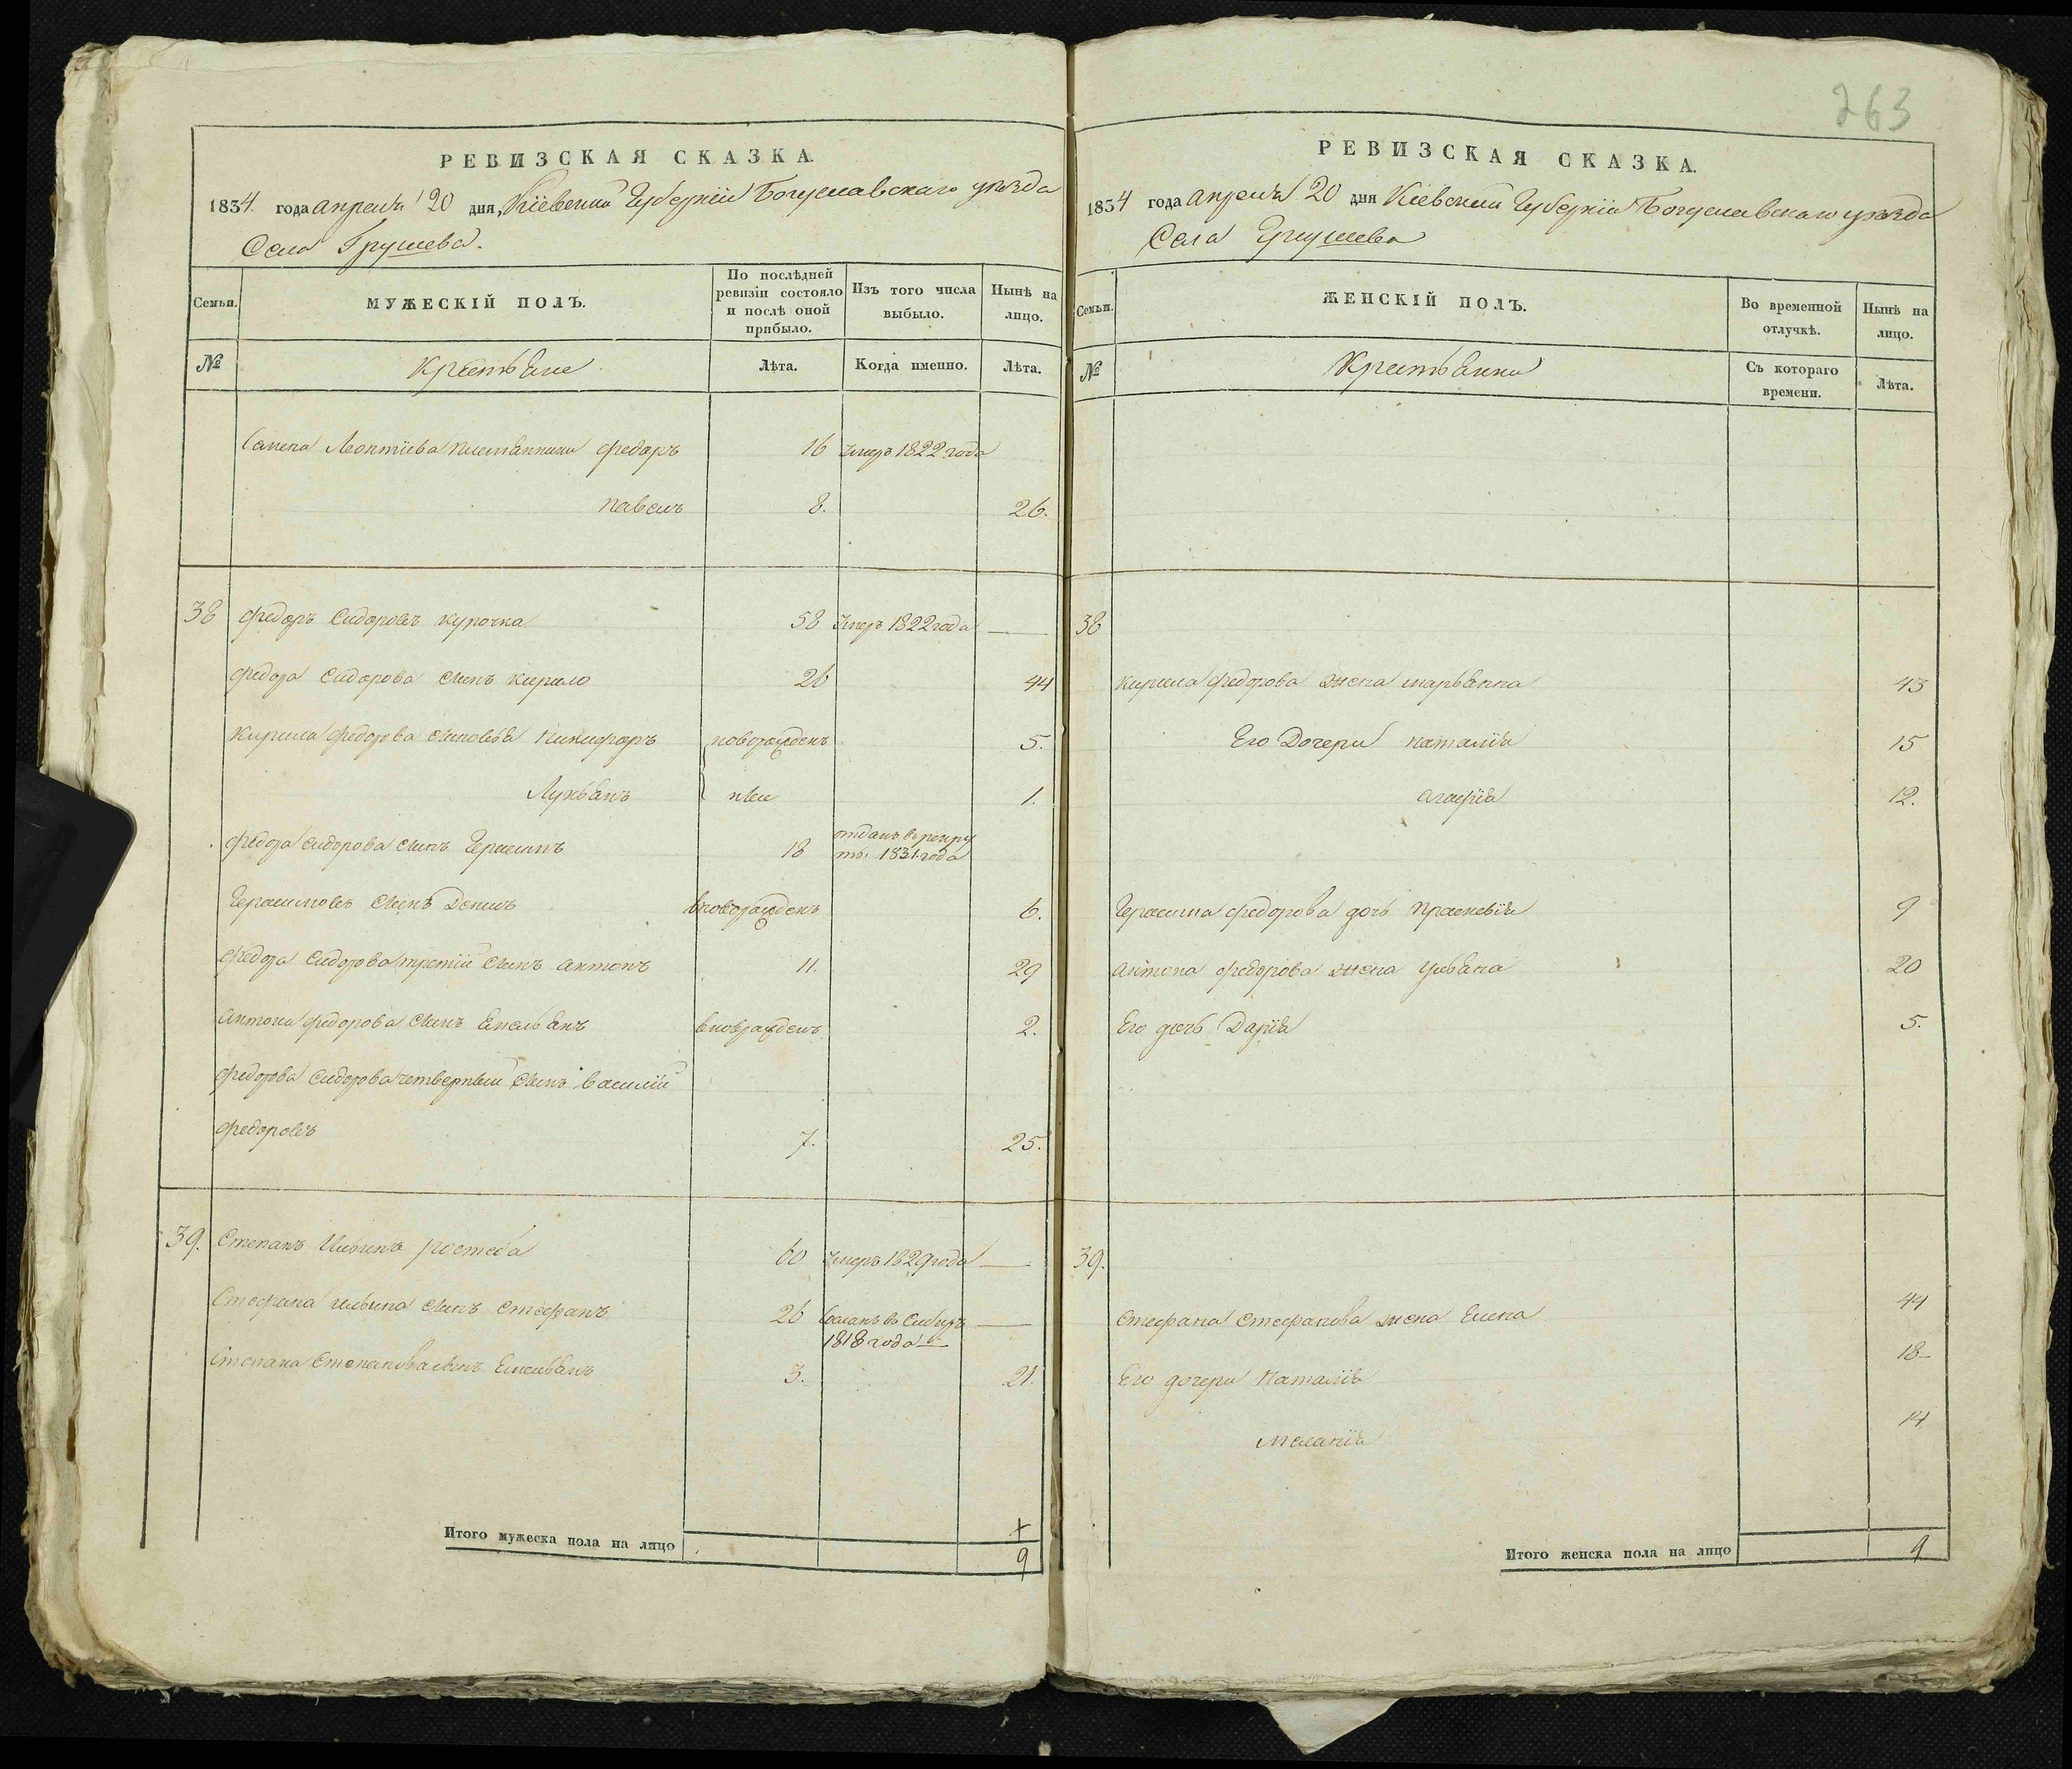 263
РЕВИЗСКАЯ СКАЗКА.
1834. года апреля 20 дня, Кіевской Губерніи Богуславскаго уѣзда
Села Грушева.
Семьи. МУЖЕСКІЙ ПОЛЪ. По послѣдней ревизіи состояло и послѣ оной прибыло. Изъ того числа выбыло. Нынѣ на лицо.
№ Крестьяне Лѣта. Когда именно. Лѣта.
Леонтіева племянники федоръ 16 умеръ 1822 года
павелъ 8. 26.
38 федоръ Сидоровъ курочка 58 умеръ 1822 года —
федора Сидорова сынъ кирило 26 44
кирила федорова сыновья никифоръ новорожден 5.
Лукьянъ ные 1.
федора сидорова сынъ Герасимъ 18 отданъ в рекру
ты. 1831. года
Герасимовъ сынъ Денисъ вноворожденъ 6.
федора Сидорова третій сынъ антонъ 11. 29
антона федорова сынъ Емельянъ вноврожденъ 2.
федорова Сидорова четвертый сынъ василій
федоровъ 7. 25.
39. Степанъ Ильинъ 60 умеръ 1829 года —
Стефана ильина сынъ Стефанъ 26 сосланъ в Сибирь —
1818 года
Степана Степанова сынъ Емельянъ 3. 21.
Итого мужеска пола на лицо 9
РЕВИЗСКАЯ СКАЗКА.
1834 года апреля 20 дня Кіевской Губерніи Богуславскаго уѣзда
Села Грушева
Семьи. ЖЕНСКІЙ ПОЛЪ. Во временной отлучкѣ. Нынѣ на лицо.
№ Крестьянки Съ котораго времени. Лѣта.
38
кирила федорова жена марьянна 43
Его Дочери наталія 15
агафія 12.
Герасима федорова дочь прасковія 9
антона федорова жена ульяна 20
Его дочь Дарія 5.
39.
Стефана Стефанова жена Елена 44
Его дочери Наталія 18
Меланія 14
Итого женска пола на лицо 9